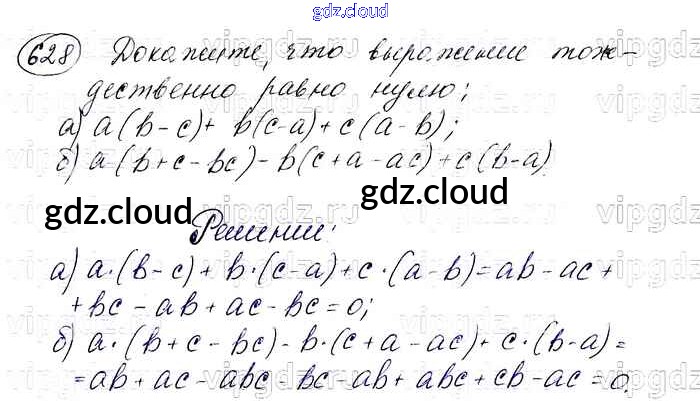 gdz.cloud
628 Докажите, что выражение тож-
дественно равно нулю:
а) a(b-c)+ b(c-a)+c(a-b);
б) a(b+c-bc)-b(c+a-ac)+c(b-a)
gdz.cloud gdz.cloud
Решение:
а) a·(b-c)+b·(c-a)+c·(a-b)=ab-ac+
+bc-ab+ac-bc=0;
б) a·(b+c-bc)-b·(c+a-ac)+c·(b-a)=
=ab+ac-abc-bc-ab+abc+cb-ac=0.